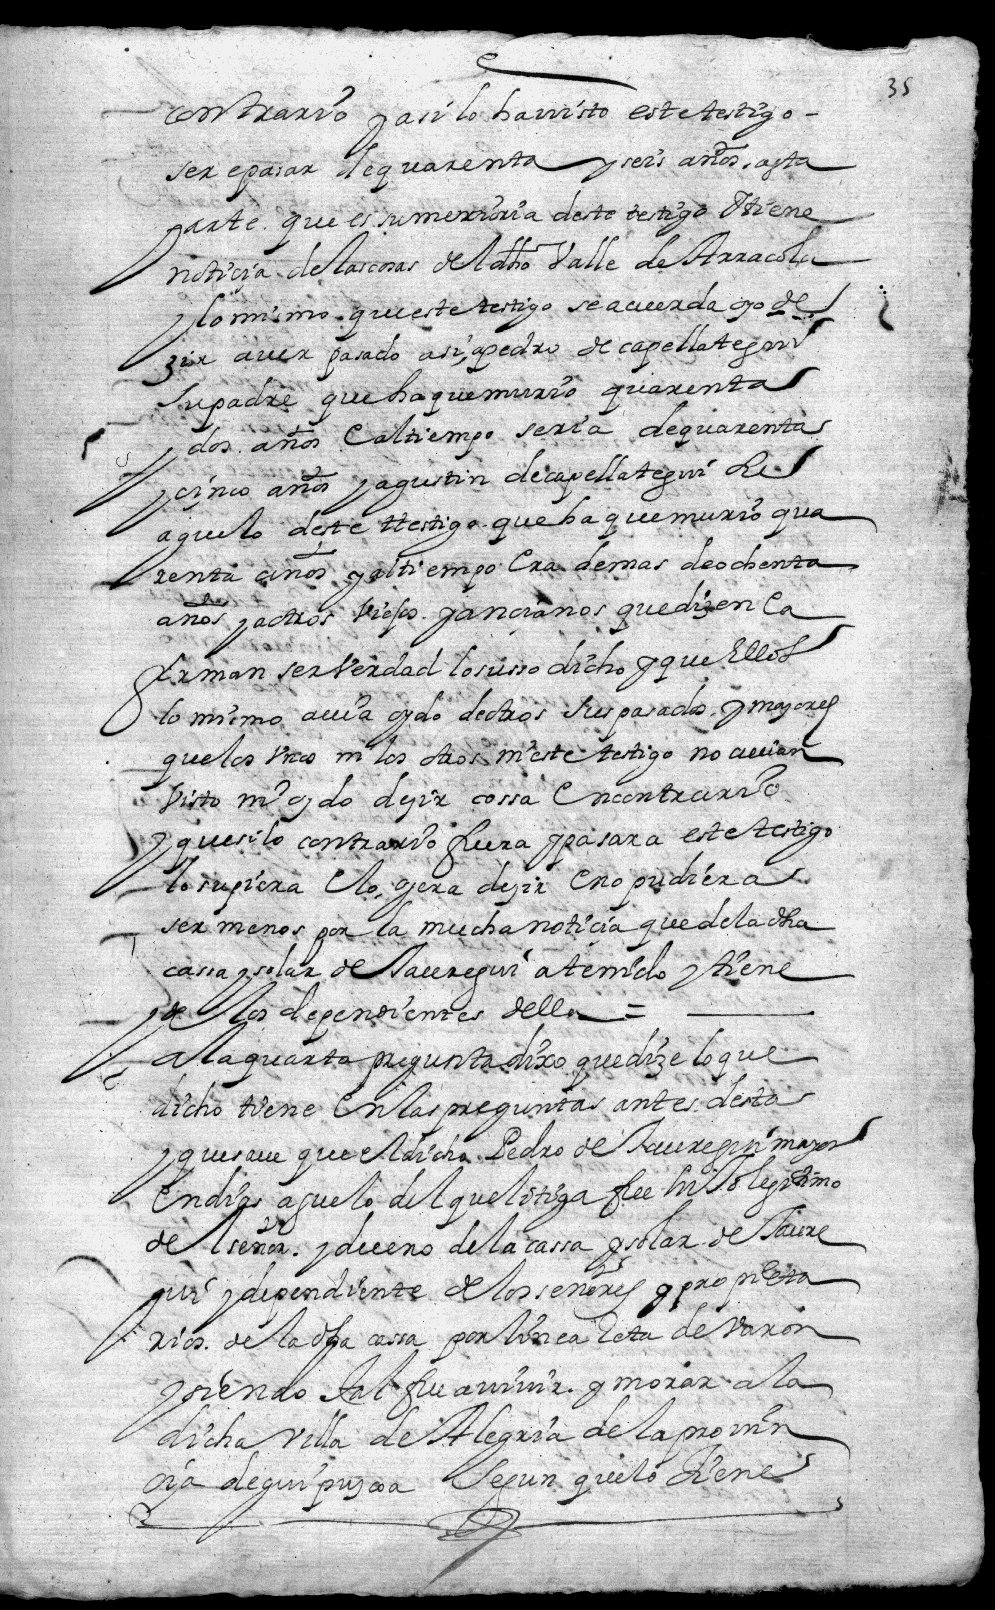 35
contrario y asi lo ha visto este testigo
ser e pasar de quarenta y seis años a esta
parte que es su memoria deste testigo y tiene
noticia de las cosas del dho Valle de Arracola
y lo mismo que este testigo se acuerda oyo de
zir aver pasado asi a pedro de capellategui
su padre que ha que murio quarenta
y dos años e al tiempo seria de quarenta
y cinco años y agustin de capellategui
aguelo deste testigo que ha que murio qua
renta años y al tiempo era de mas de ochenta
años y a otros viejos y ancianos que dizen e a
firman ser verdad lo susso dicho y que ellos
lo mismo avia oydo de otros sus pasados y mayores
que los unos ni los otros ni este testigo no avian
visto ni oydo dezir cossa en contrario
y que si lo contrario fuera y pasara este testigo
lo supiera e lo oyera dezir e no pudiera
ser menos por la mucha noticia que de la dha
cassa y solar de Jauregui a tenido y tiene
y de los dependientes della =
A la quarta pregunta dixo que dize lo que
dicho tiene en las preguntas antes desta
y que save que el dicho Pedro de Jauregui mayor
en dias aguelo del que litiga fue hijo legitimo
del señor y dueno de la cassa y solar de Jaure
gui y dependiente de los señores y propieta
rios de la dha cassa por linea reta de varon
y siendo tal fue a vivir y morar a la
dicha villa de Alegria de la provin
cia de guipuzcoa segun que lo tiene